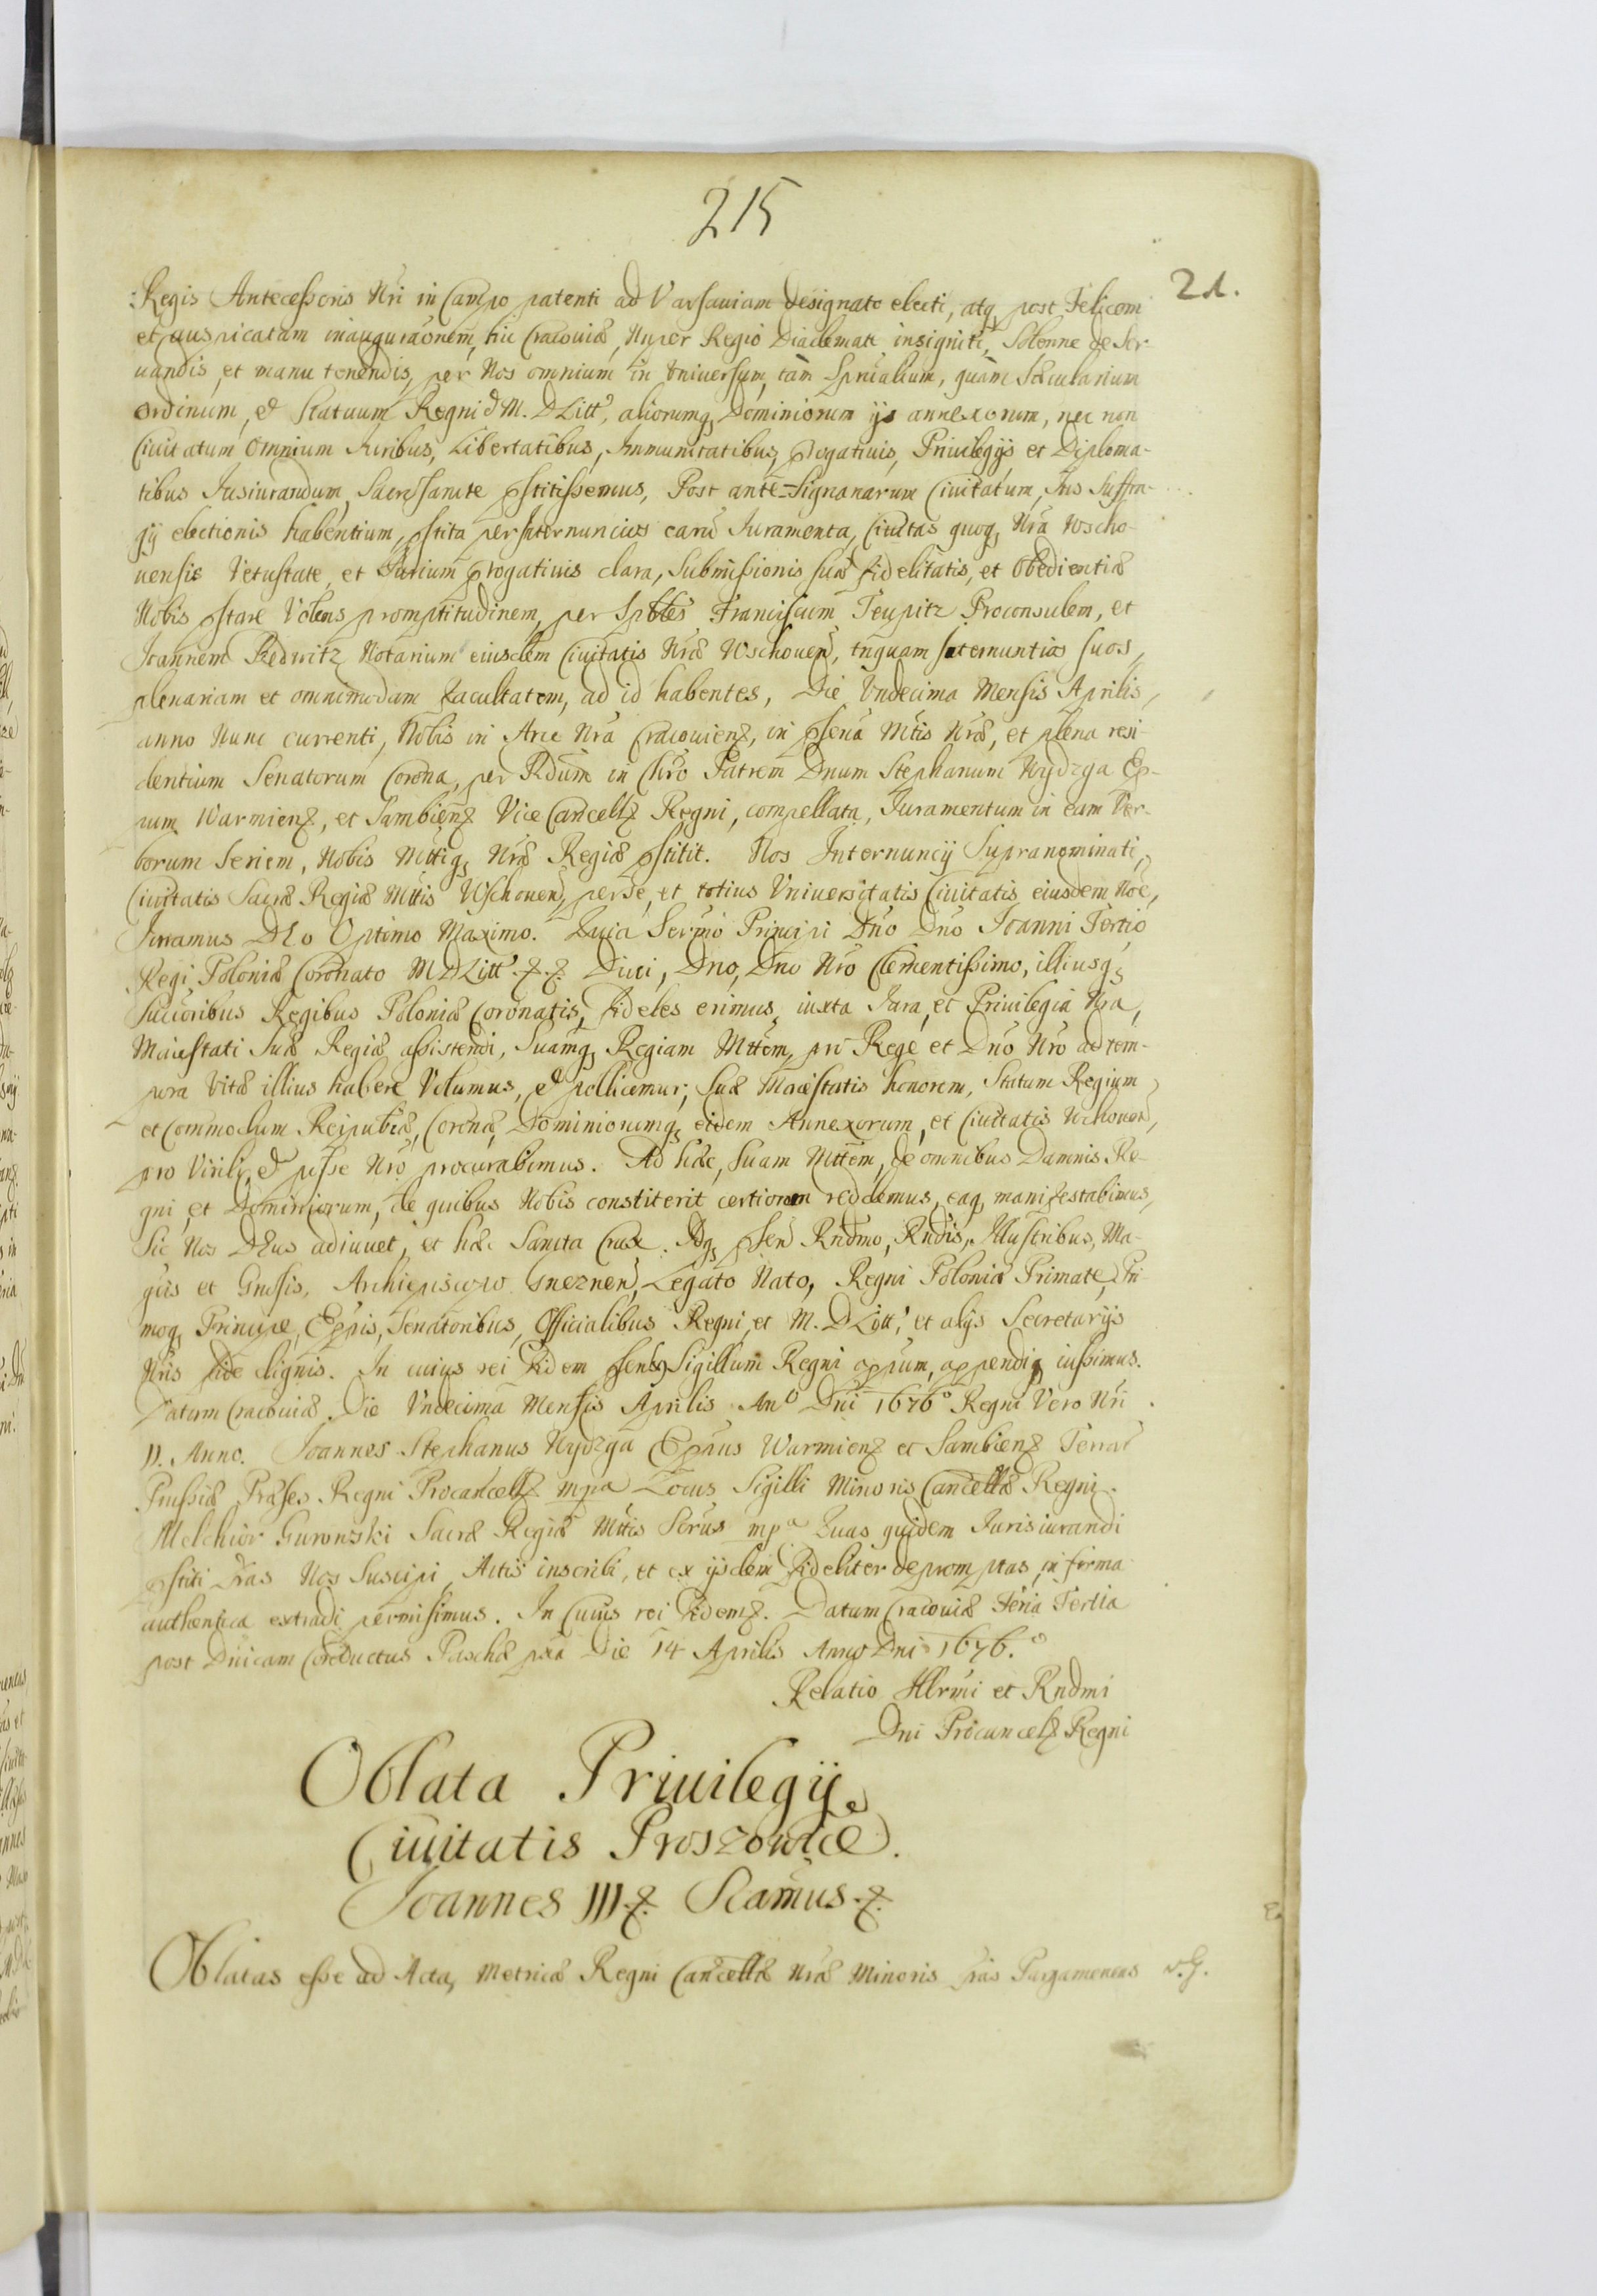 215
21.
Regis Antecessoris Nri in Campo patenti ad Varsauiam designato electi, atq post Felicem
et auspicatam inauguraonem, hic Cracouiæ, Nuper Regio Diademate insigniti, Solenne de Ser-
uandis, et manu tenendis, per Nos omnium in Vniuersum, tam Sprualium, quam Sæcularium
ordinum, et Statuum Regni et M. D Litt, aliorumq Dominiorum ijs annexorum, nec non
Ciuitatum omnium Iuribus, Libertatibus, Immunitatibus, progatiuis, Priuilegijs et Diploma-
tibus Iusiurandum, Sacrossancte pstitissemus, Post ante-signanarum Ciuitatum, Ius Suffra-
gij electionis habentium, pstita per Internuncios earu Iuramenta, Ciuitas quoq Nra Wscho-
uensis Vetustate, et Iurium progatiuis clara, Submissionis suæ fidelitatis, et Obedientiæ
Nobis pstare Volens promptitudinem, per Spbles Franciscum Teupitz Proconsulem, et
Joannem Redwitz Notarium eiusdem Ciuitatis Nræ Wschouen, tnquam Internuntios suos,
plenariam et omnimodam facultatem, ad id habentes, Die Vndecima Mensis Aprilis,
anno Nunc currenti, Nobis in Arce Nra Cracouien, in psena Mtis Nræ, et plena resi-
dentium Senatorum Corona, per Rdum in Chro Patrem Dnum Stephanum Wydzga Ep-
pum Warmien, et Sambien Vice Cancell Regni, compellata, Iuramentum in eam Ver-
borum Seriem, Nobis Mttiq Nræ Regiæ pstitit. Nos Internuncij Supranominati,
Ciuitatis Sacræ Regiæ Mttis Wschouen, per se, et totius Vniuersitatis Ciuitatis eiusdem Noe,
Iuramus DEo Optimo Maximo. Quia Sermo Principi Dno Dno Ioanni Tertio
Regi Poloniæ Coronato M D Litt. Duci, Dno, Dno Nro Clementissimo, illiusq
Succoribus Regibus Poloniæ Coronatis, Fideles erimus, iuxta Iura, et Priuilegia Nra,
Maiestati Suæ Regiæ assistendi, Suamq Regiam Mttem, pro Rege et Dno Nro ad tem-
pora Vitæ illius habere Volumus, et pollicemur, Suæ Maiestatis honorem, Statum Regium
et Commodum Reipubæ, Coronæ, Dominiorumq eidem Annexorum, et Ciuitatis Wschouen,
pro Virili, et posse Nro procurabimus. Ad hæc, Suam Mttem, de omnibus Damnis Re-
gni, et Dominiorum, de quibus Nobis constiterit certiorem reddemus, eaq manifestabimus,
Sic Nos DEus adiuuet, et hæc Sancta Crux. Adq psen Rndmo, Rndis, Illustribus, Ma-
gcis et Gnssis, Archiepiscopo Gneznen, Legato Nato, Regni Poloniæ Primate, Pri-
moq Principe, Eppis, Senatoribus, Officialibus Regni, et M. D Litt, et alijs Secretarijs
Nris fide dignis. In cuius rei Fidem psentes Sigillum Regni appsum, appendi iussimus.
Datum Cracouiæ. Die Vndecima Mensis Aprilis Ano Dni 1676o Regni Vero Nri
II. Anno. Ioannes Stephanus Wydzga Eppus Warmien et Sambien Terrar
Prussiæ Præses. Regni Procancell mpa Locus Sigilli Minoris Cancellæ Regni.
Melchior Gurowski Sacræ Regiæ Mttis Scrus mpa Quas quidem Iurisiurandi
pstiti Lras Nos Suscipi, Actis inscribi, et ex ijsdem Fideliter depromptas, in forma
authentica extradi permisimus. In Cuius rei Fidem. Datum Cracouiæ Feria Tertia
post Dnicam Conductus Paschæ pxa Die 14 Aprilis Anno Dni 1676.o
Relatio Illrmi et Rndmi
Dni Procancell Regni
Oblata Priuilegij
Ciuitatis Proszouicæ.
Joannes III. Scamus.
Oblatas esse ad Acta, Metricæ Regni Cancellæ Nræ Minoris Lras Pargameneas
v.g.